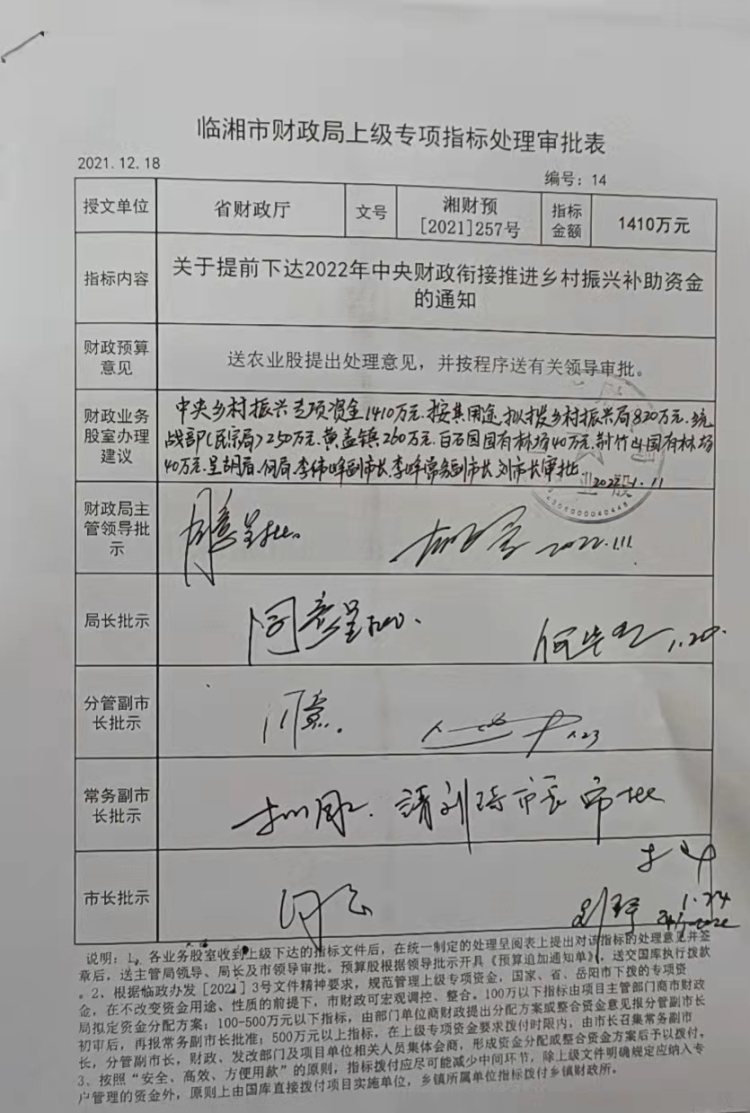 临湘市财政局上级专项指标处理审批表
2021.12.18
编号：14
授文单位 省财政厅 文号 湘财预[2021]257号 指标金额 1410万元
指标内容 关于提前下达2022年中央财政衔接推进乡村振兴补助资金
的通知
财政预算
意见
送农业股提出处理意见，并按程序送有关领导审批。
财政业务
股室办理
建议
中央乡村振兴专项资金1410万元.按其用途.拟拨乡村振兴局820万元.统
战部(民宗局)250万元.黄盖镇260万元.白石园国有林场40万元.荆竹山国有林场
40万元.呈胡局.何局.李伟峰副市长.李峰常务副市长.刘市长审批.
2022.1.11
业股
4306000040448
财政局主
管领导批
示
同意呈批。
2022.1.11
局长批示
同意呈批.
1.20.
分管副市
长批示
同意.
1.23
常务副市
长批示
请刘琦市长审批
1.24
市长批示
同意
刘琦
24/1-2022
说明：1、各业务股室收到上级下达的指标文件后，在统一制定的处理呈阅表上提出对该指标的处理意见并签
章后，送主管局领导、局长及市领导审批。预算股根据领导批示开具《预算追加通知单》，送交国库执行拨款
。2、根据临政办发【2021】3号文件精神要求，规范管理上级专项资金，国家、省、岳阳市下拨的专项资
金，在不改变资金用途、性质的前提下，市财政可宏观调控、整合。100万以下指标由项目主管部门商市财政
局拟定资金分配方案；100-500万元以下指标，由部门单位商财政提出分配方案或整合资金意见报分管副市长
初审后，再报常务副市长批准；500万元以上指标，在上级专项资金要求拨付时限内，由市长召集常务副市
长，分管副市长，财政、发改部门及项目单位相关人员集体会商，形成资金分配或整合资金方案后予以拨付，
3、按照“安全、高效、方便用款”的原则，指标拨付应尽可能减少中间环节，除上级文件明确规定应纳入专
户管理的资金外，原则上由国库直接拨付项目实施单位，乡镇所属单位指标拨付乡镇财政所。